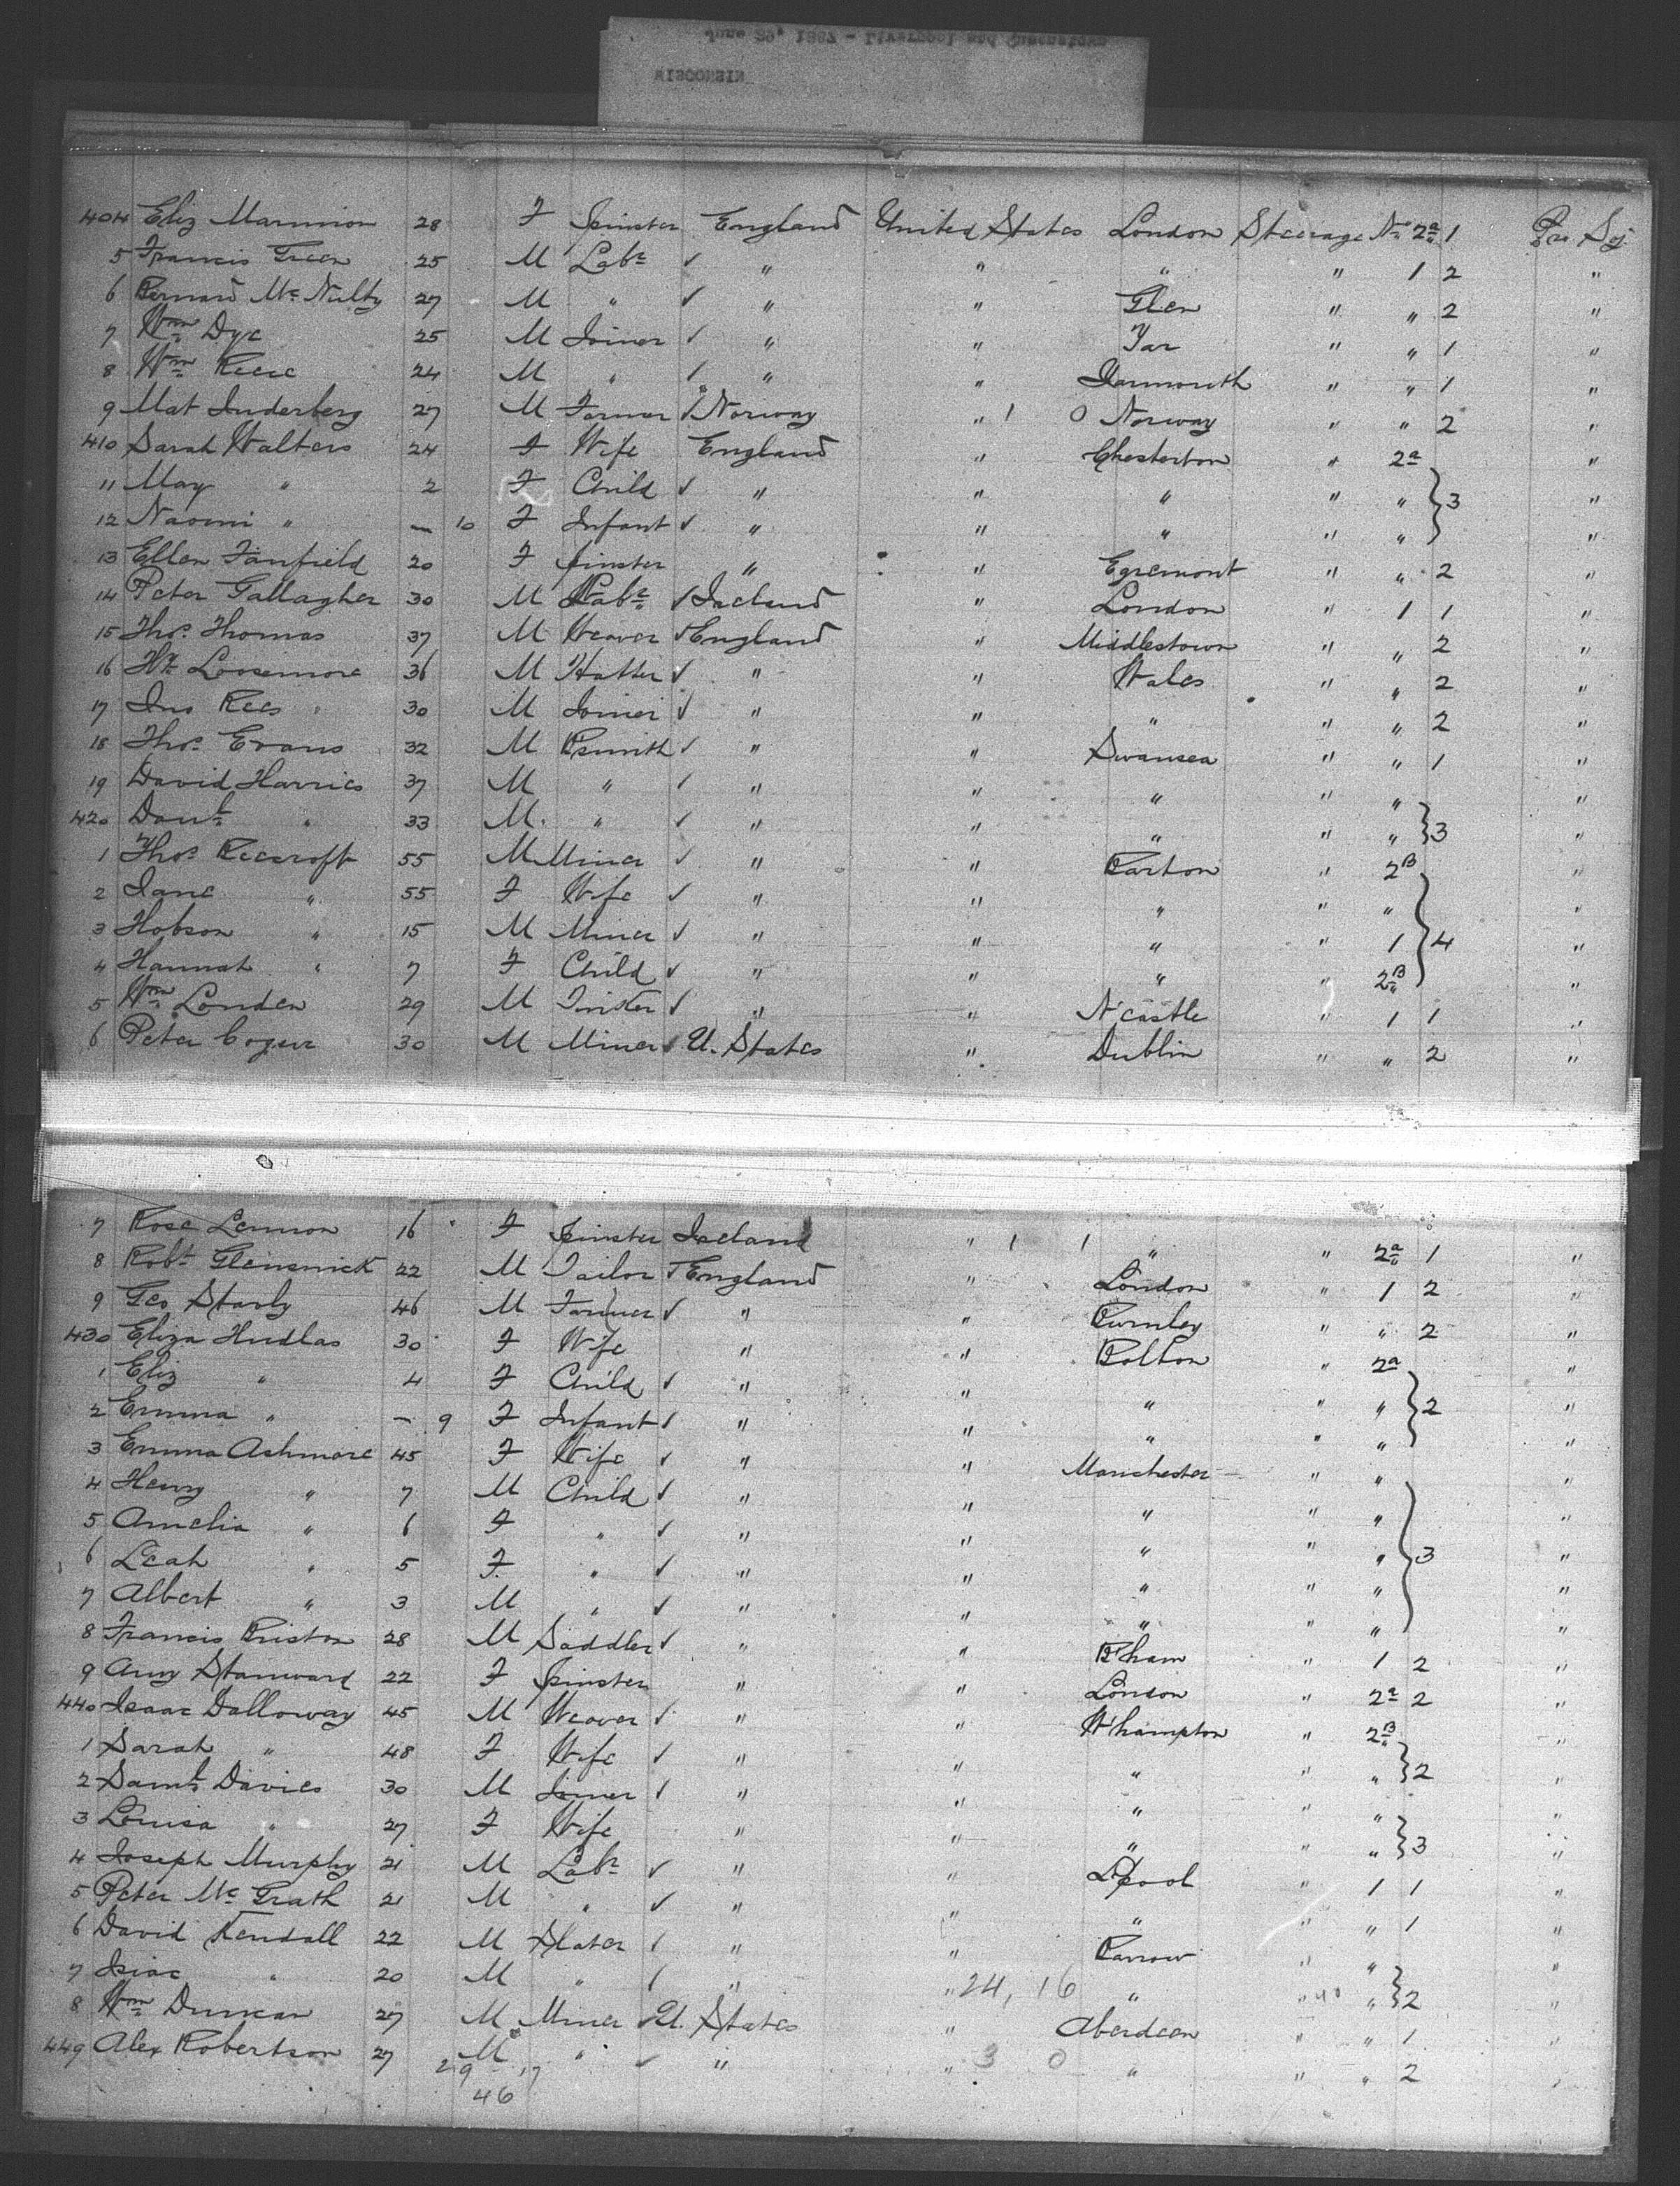 June 29" 1887 - Liverpool and Queenstown
WISCONSIN
404 Eliz Marmion 28 F Spinster England United States London Steerage No 2a 1 Pro Soj
5 Francis Green 25 M Labr ✓ " " " " 1 2 "
6 Bernard Mc Nulty 27 M " ✓ " " Glen " " 2 "
7 Wm Dye 25 M Joiner ✓ " " Yar " " 1 "
8 Wm Reece 24 M " ✓ " " " " 1 "
9 Mat Inderberg 27 M Farmer ✓ Norway " 1 0 Norway " " 2 "
410 Sarah Walters 24 F Wife England " Chesterton " 2a "
11 May " 2 F Child ✓ " " " " " } 3 "
12 Naomi " — 10 F Infant ✓ " " " " " "
13 Ellen Fanfield 20 F Spinster " " Egremont " " 2 "
14 Peter Gallagher 30 M Labr ✓ Ireland " London " 1 1 "
15 Thos Thomas 37 M Weaver ✓ England " Middlestown " " 2 "
16 Loosemore 36 M Hatter ✓ " " Wales " " 2 "
17 Jno Rees 30 M Joiner ✓ " " " " " 2 "
18 Thos Evans 32 M Bsmith ✓ " " Swansea " " 1 "
19 David Harries 37 M " ✓ " " " " " "
420 Danl " 33 M " ✓ " " " " " } 3 "
1 Thos Reecroft 55 M Miner ✓ " " Barton " 2B "
2 Jane " 55 F Wife ✓ " " " " " "
3 Hobson " 15 M Miner ✓ " " " " 1 } 4 "
4 Hannah " 7 F Child ✓ " " " " 2B "
5 Wm Londen 29 M ✓ " " N'castle " 1 1 "
6 Peter 30 M Miner ✓ U. States " Dublin " " 2 "
7 Rose Lennon 16 F Spinster Ireland " 1 1 " " 2a 1 "
8 Robt 22 M Tailor ✓ England " London " 1 2 "
9 Geo 46 M Farmer ✓ " " Burnley " " 2 "
430 Eliza 30 F Wife " " Bolton " 2a "
1 Eliz " 4 F Child ✓ " " " " " } 2 "
2 Emma " — 9 F Infant ✓ " " " " " "
3 Emma Ashmore 45 F Wife ✓ " " Manchester " " "
4 Henry " 7 M Child ✓ " " " " " "
5 Amelia " 6 F " ✓ " " " " " } 3 "
6 Leah " 5 F " ✓ " " " " " "
7 Albert " 3 M " ✓ " " " " " "
8 Francis Priston 28 M Saddler ✓ " " B'ham " 1 2 "
9 Amy Stanward 22 F Spinster " " London " 2a 2 "
440 Isaac Dalloway 45 M Weaver ✓ " " W'hampton " 2B "
1 Sarah " 48 F Wife ✓ " " " " " } 2 "
2 Saml Davies 30 M Joiner ✓ " " " " " "
3 Louisa " 27 F Wife " " " " " } 3 "
4 Joseph Murphy 21 M Labr ✓ " " L'pool " 1 1 "
5 Peter Mc Grath 21 M " ✓ " " " " " 1 "
6 David Kendall 22 M Slater ✓ " " Barrow " " "
7 Isiac " 20 M " ✓ " " 24, 16 " " 40 " } 2 "
8 Wm Duncan 27 M Miner ✓ U. States " Aberdeen " " 1 "
449 Alex Robertson 27 M " ✓ " " 3 0 " " " 2 "
29 17
46